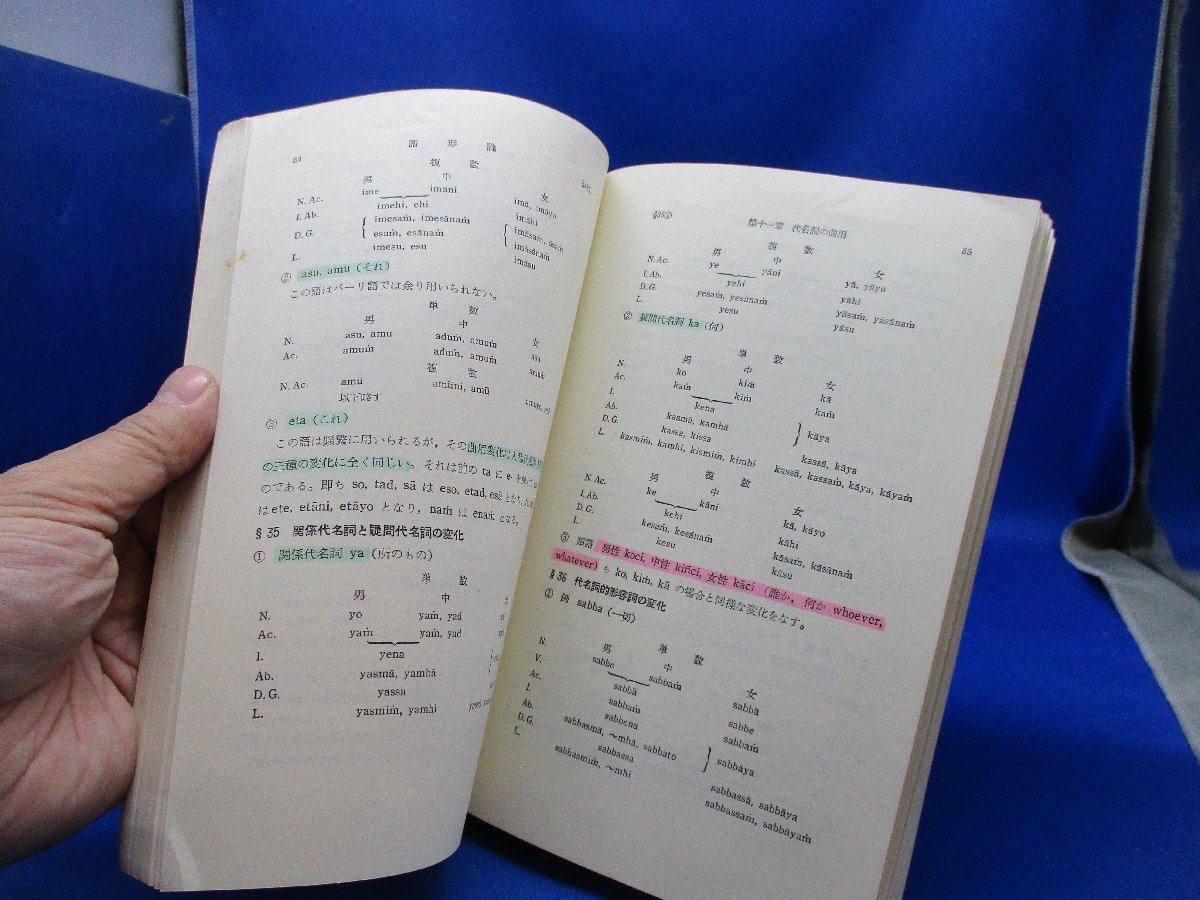 84
語 形 論
複 数
男 中 女
N. Ac. ime imāni imā, imāyo
I. Ab. imehi, ehi imāhi
D. G. imesaṁ, imesānaṁ imāsaṁ, āsaṁ
esaṁ, esānaṁ imāsānaṁ
L. imesu, esu imāsu
② asu, amu (それ)
この語はパーリ語では余り用いられない。
単 数
男 中 女
N. asu, amu aduṁ, amuṁ asu
Ac. amuṁ aduṁ, amuṁ amuṁ
複 数
N. Ac. amū amūni, amū
以下略す
③ eta (これ)
この語は頻繁に用いられるが, その曲用変化は
の三種の変化に全く同じい。それは前の ta に e- を
のである。即ち so, tad, sā は eso, etad, esā となり,
は ete, etāni, etāyo となり, naṁ は enaṁ となる。
§ 35 関係代名詞と疑問代名詞の変化
① 関係代名詞 ya (所のもの)
単 数
男 中
N. yo yaṁ, yad
Ac. yaṁ yaṁ, yad
I. yena
Ab. yasmā, yamhā
D. G. yassa
L. yasmiṁ, yamhi
§35① 第十一章 代名詞の曲用 85
複 数
男 中 女
N. Ac. ye yāni yā, yāyo
I. Ab. yehi yāhi
D. G. yesaṁ, yesānaṁ yāsaṁ, yāsānaṁ
L. yesu yāsu
② 疑問代名詞 ka (何)
単 数
男 中 女
N. ko kiṁ kā
Ac. kaṁ kiṁ kaṁ
I. kena
Ab. kasmā, kamhā kāya
D. G. kassa, kissa kassā, kāya
L. kasmiṁ, kamhi, kismiṁ, kimhi kassā, kassaṁ, kāya, kāyaṁ
複 数
男 中 女
N. Ac. ke kāni kā, kāyo
I. Ab. kehi kāhi
D. G. kesaṁ, kesānaṁ kāsaṁ, kāsānaṁ
L. kesu kāsu
③ 熟語 男性 koci, 中性 kiñci, 女性 kāci (誰か, 何か whoever,
whatever) も ko, kiṁ, kā の場合と同様な変化をなす。
§ 36 代名詞的形容詞の変化
① 例 sabba (一切)
単 数
男 中 女
N. sabbo sabbaṁ sabbā
V. sabbā sabbe
Ac. sabbaṁ sabbaṁ
I. sabbena
Ab. sabbasmā, ～mhā, sabbato sabbāya
D. G. sabbassa sabbassā, sabbāya
L. sabbasmiṁ, ～mhi sabbassaṁ, sabbāyaṁ